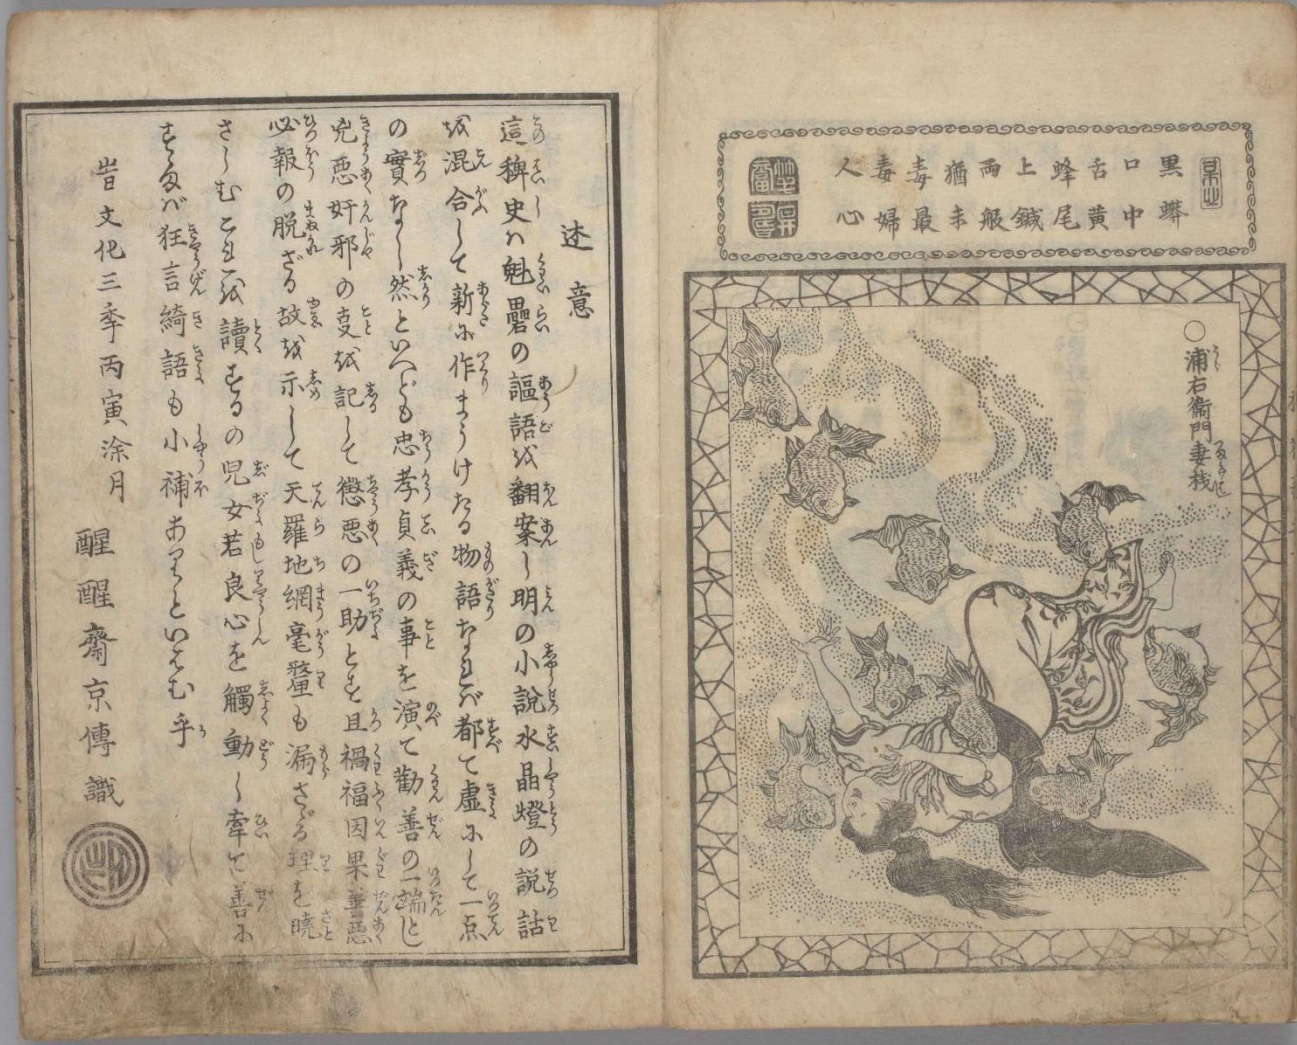 黒蠎
口中
舌黄
蜂尾
上鍼
両般
猶未
毒最
毒婦
人心
○浦右衛門妻桟
述意
這稗史ハ魁罍の謳語を翻案し明の小説水晶燈の説話
を混合して新に作まうけたる物語なれバ都て虚にして一点
の實なし然といへども忠孝貞義の事を演て勸善の一端とし
兇悪奸邪の㕝を記して懲悪の一助とす且禍福因果善悪
必報の脱ざる故を示して天羅地網毫釐も漏さゞる理を暁
さしむこれを讀するの児女若良心を觸動し牽て善に
すゝまバ狂言綺語も小補ありといはむ乎
旹文化三季丙寅涂月
醒醒齋京傳識